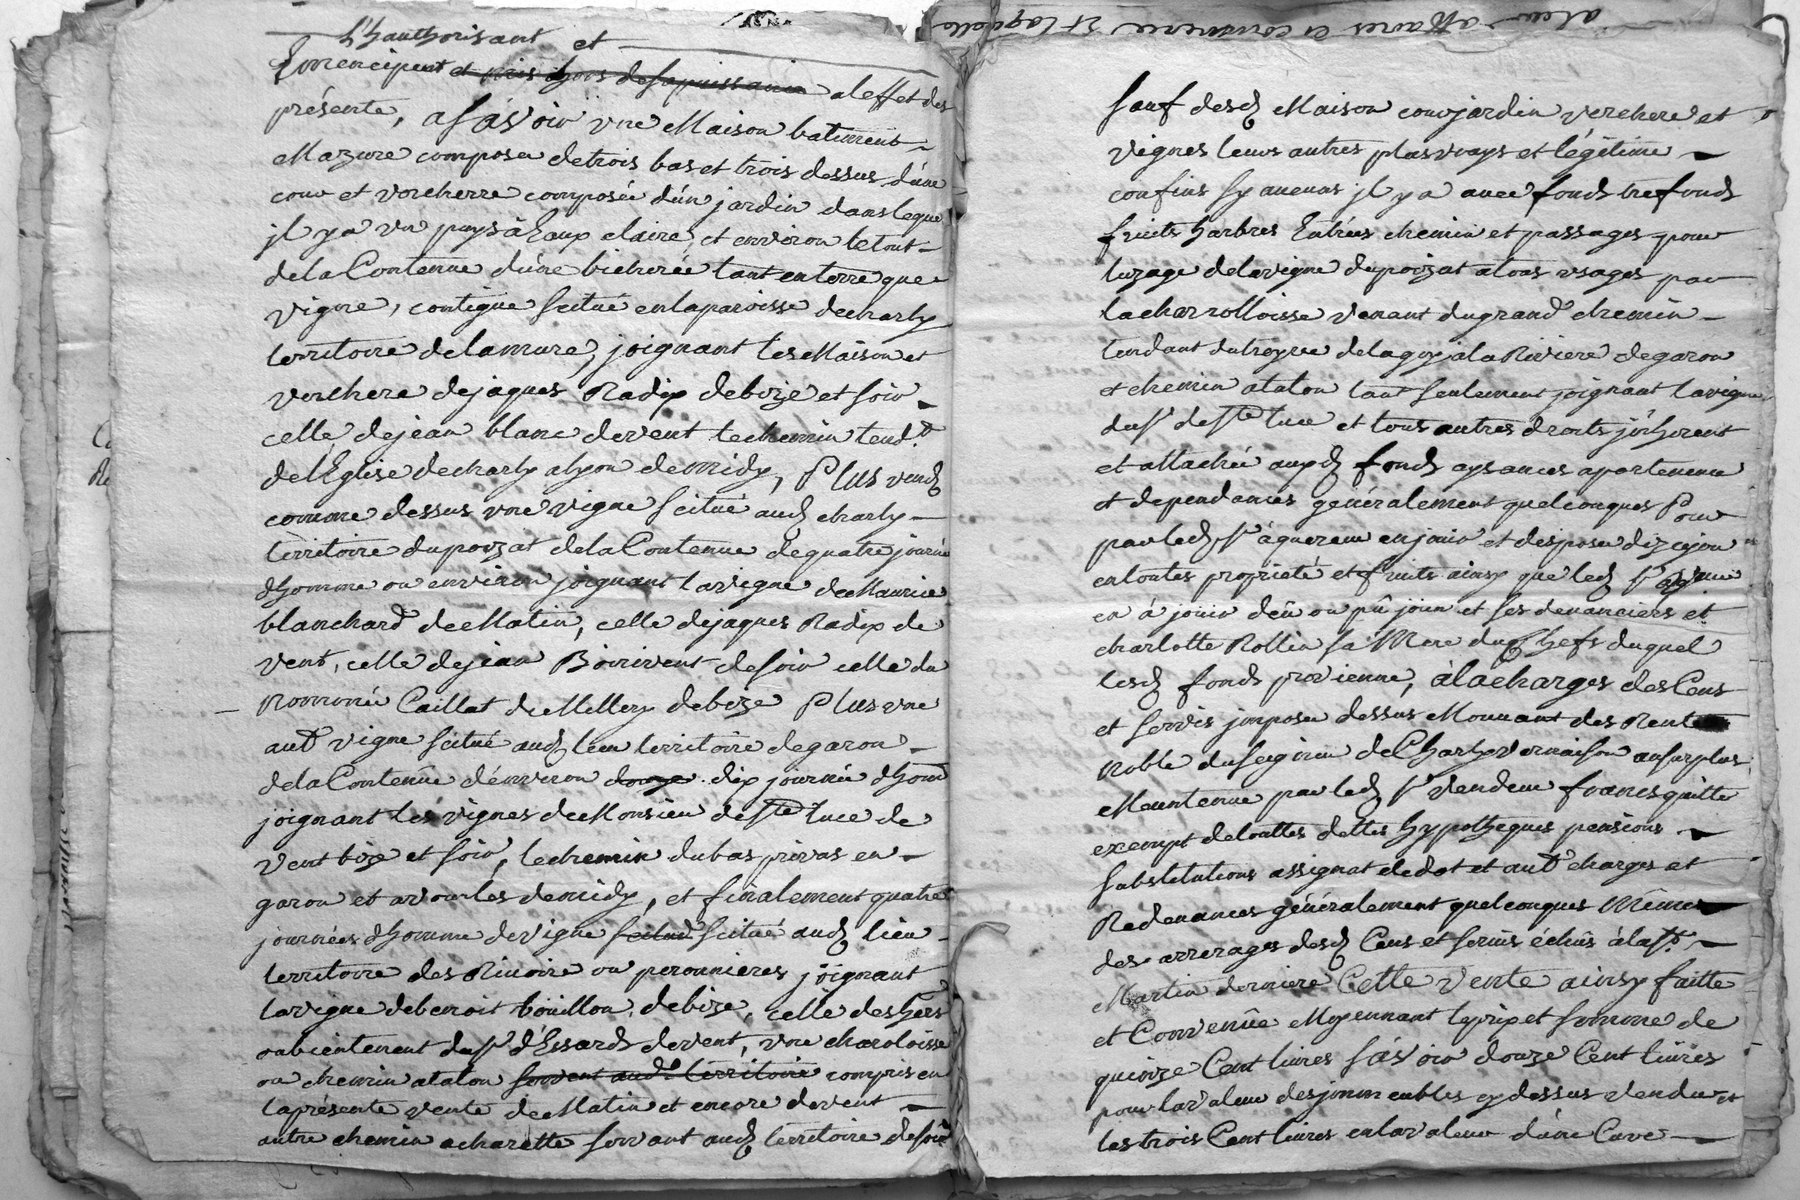 l'hauthorisant et
Emencipent et mis hors de sa puissance aleffet des
présente, asavoir une Maison batiment
Mazure composee detrois bas et trois dessus d'une
cour et vercherre composée d'un jardin dans leque
jl y a un puys à Eaux claire, et environ le tout
dela Contenue d'une bicherée tant en terre que
vigne, contigue scitué en la paroisse decharly
territoire delamure, joignant les Maison et
verchere dejaques Radix debize et soir
celle dejean blanc devent le chemin tend.t
de l'Eglise decharly alyon demidy, Plus vend
comme dessus une vigne scitué aud charly
territoire dupoizat dela Contenue de quatre journée
dhomme ou environ joignant la vigne de Maurice
blanchard de Matin, celle dejaques Radix de
vent, celle dejean desoir celle du
nommé Caillat de Millery debize Plus une
aut vigne scitué aud lieu territoire degaron
dela Contenue d'environ douze dix journée dhom
joignant les vignes de Monsieu de Ste luce de
vent bize et soir, le chemin dubas privas en
garon et avourles demidy, et finalement quatre
journées dhomme de vigne scitué scitué aud lieu
territoire des Rivoire ou peronnieres joignant
la vigne debenoit bouillon, debize, celle des hers
ou bientenent du Sr d'Essards devent, une charoloisse
ou chemin atalon servent aud territoire compris en
la présente vente de Matin et encore devent
autre chemin acharette servant aud territoire desoir
sauf desd Maison cour jardin verchere et
vignes leurs autres plus vrays et légitime
confins sy aucuns jl y a avec fonds trefonds
fruits harbres Entrées chemin et passages pour
luzage delavigne dupoizat atous usages par
la charrolloisse venant du grand chemin
tendant delagoy ala Riviere degaron
et chemin atalon tant seulement joignant lavigne
du Sr de Ste luce et tous autres droits jnherent
et attachée auxd fonds aysances apartenence
et dependances généralement quelconques Pour
par led Sr aquereur enjouir et disposer dizcyen
entoutes propriété et fruits ainsy que led Sr
en à jouir deu ou pû jouir et ses devanciers et
charlotte Rollin sa Mere du Chefs duquel
lesd fonds provienne, à la charges des Cens
et servis jmposee dessus Mouvant des Rente
noble du seigneur de Charly vernaison au surplus
Maintenue par led Sr vendeur francs quitte
exempt detouttes dettes hypotheques pensions
substitutions assignat dedot et aut charges et
Redevances généralement quelconques Mêmes
des arrerages desd Cens et servis échûs à la St
Martin derniere Cette vente ainsy faitte
et Convenûe Moyennant le prix et somme de
quinze Cent livres sávoir douze Cent livres
pour la valeur des jmmeubles cy dessus vendu et
les trois Cent livres en la valeur d'une Cuve